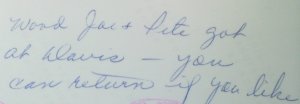 Word Joe & Pete got
at Davis — you
can return if you like